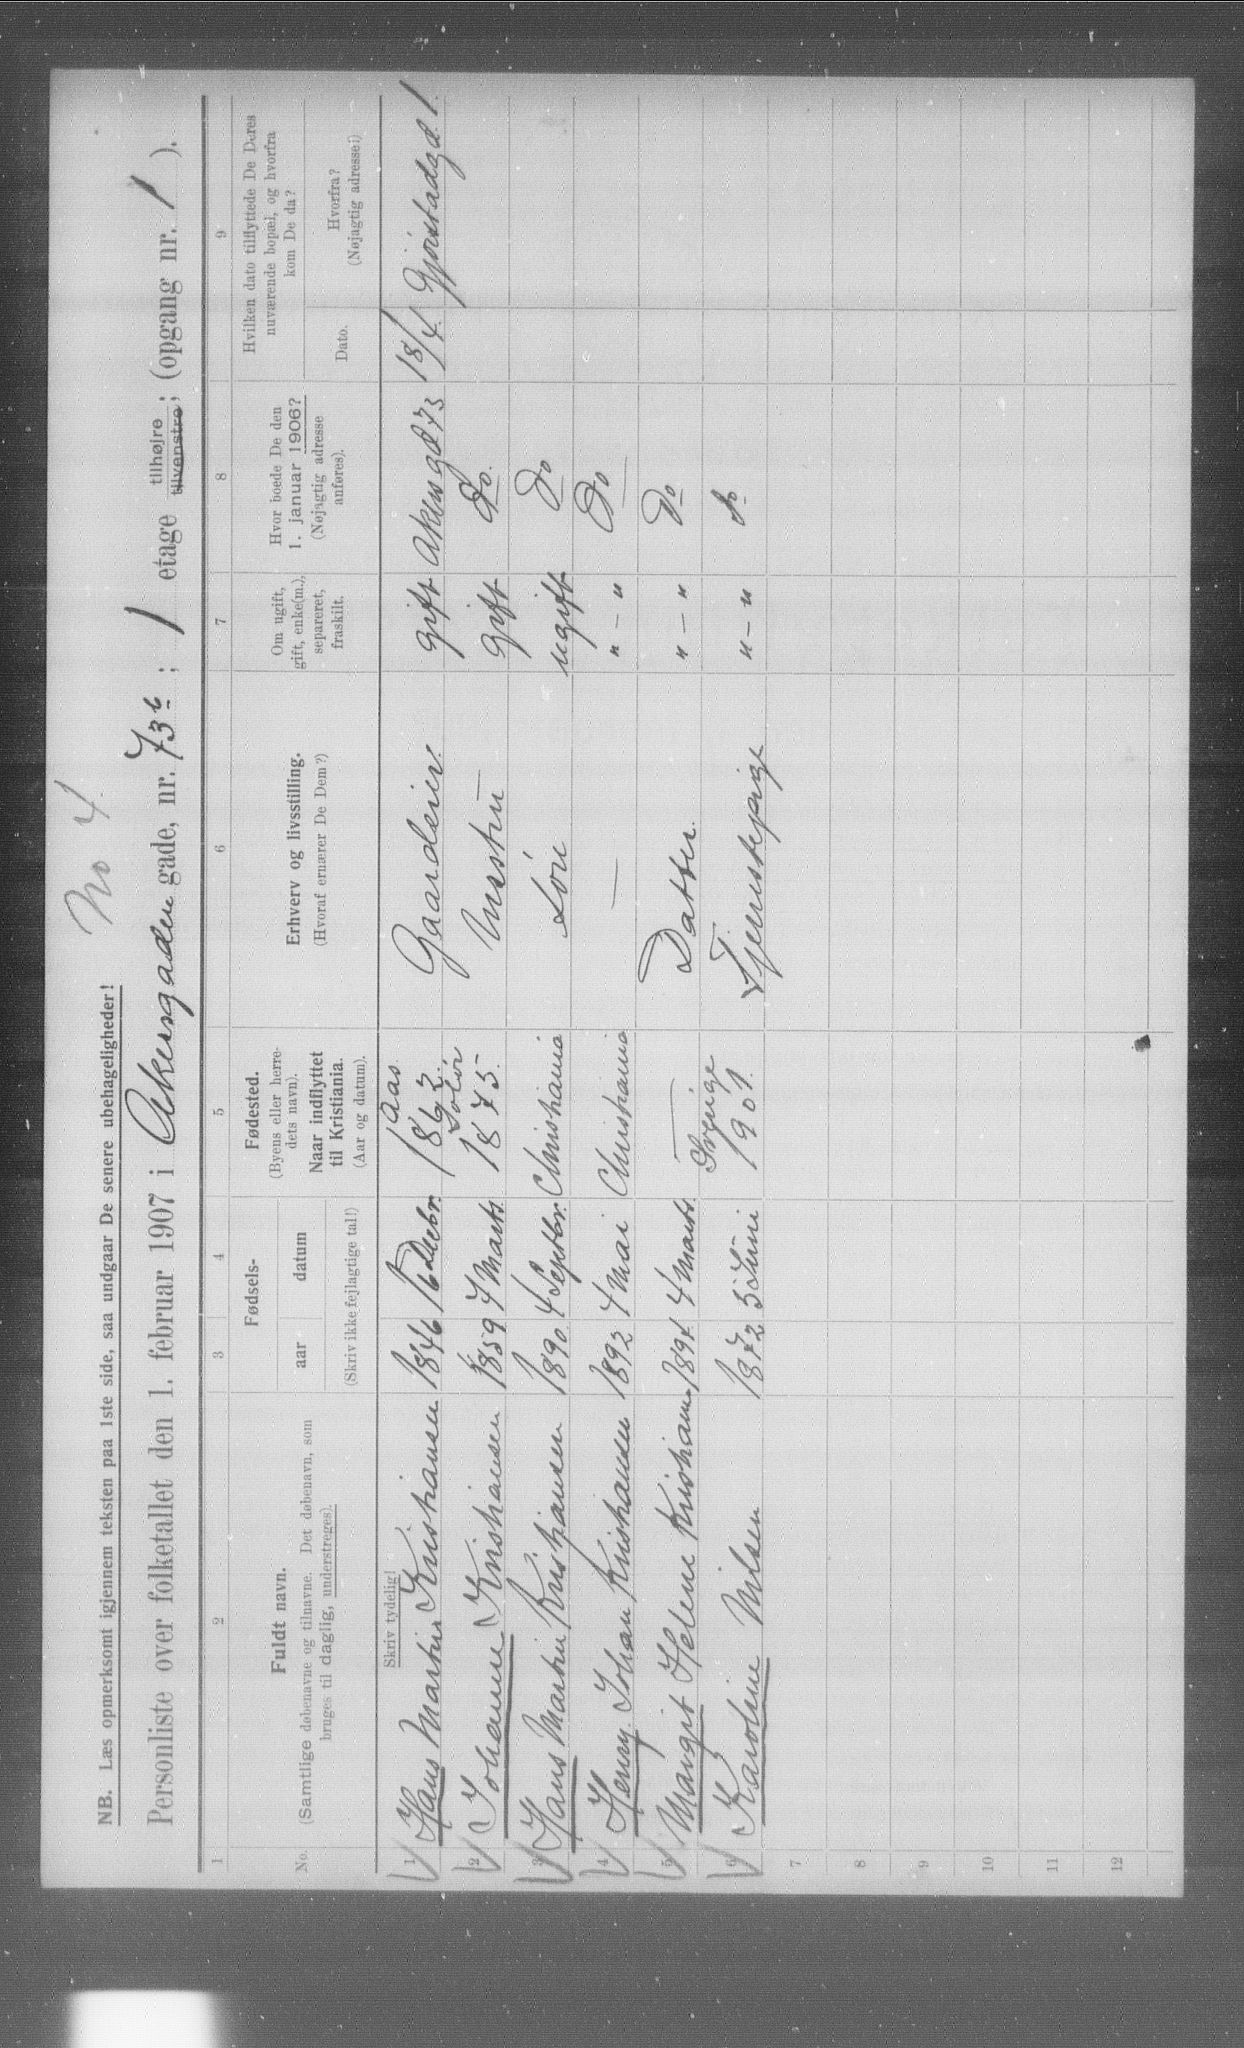 No 4.
NB. Læs opmerksomt igjennem teksten paa 1ste side, saa undgaar De senere ubehageligheder!
Personliste over folketallet den 1. februar 1907 i Akersgaden gade, nr. 73 b; 1 etage tilhøjre tilvenstre; (opgang nr. 1).
1 2 3 4 5 6 7 8 9
No.
Fuldt navn.
(Samtlige døbenavne og tilnavne. Det døbenavn, som
bruges til daglig, understreges).
Fødsels-
aar datum
(Skriv ikke fejlagtige tal!)
Fødested.
(Byens eller herre-
dets navn).
Naar indflyttet
til Kristiania.
(Aar og datum).
Erhverv og livsstilling.
(Hvoraf ernærer De Dem?)
Om ugift,
gift, enke(m.),
separeret,
fraskilt.
Hvor boede De den
1. januar 1906?
(Nøjagtig adresse
anføres).
Hvilken dato tilflyttede De Deres
nuværende bopæl, og hvorfra
kom De da?
Dato.
Hvorfra?
(Nøjagtig adresse i)
Skriv tydelig!
1 Hans Martin Kristiansen 1846 16 Decbr. Aas 1862. Gaardeier. gift Akersgd 73 18/4 1.
2 Johanne Kristiansen 1859 7 Marts. Solør 1875. Hustru gift Do.
3 Hans Martin Kristiansen 1890 4 Septbr. Christiania Søn ugift Do
4 Henry Johan Kristiansen 1892 4 Mai Christiania — " — " Do
5 Margit Helene Kristians 1894 4 Marts. — Datter. " — " Do
6 Karoline Nilsen 1872 5 Juni Sverige 1901. Tjenestepige " — " do
7
8
9
10
11
12